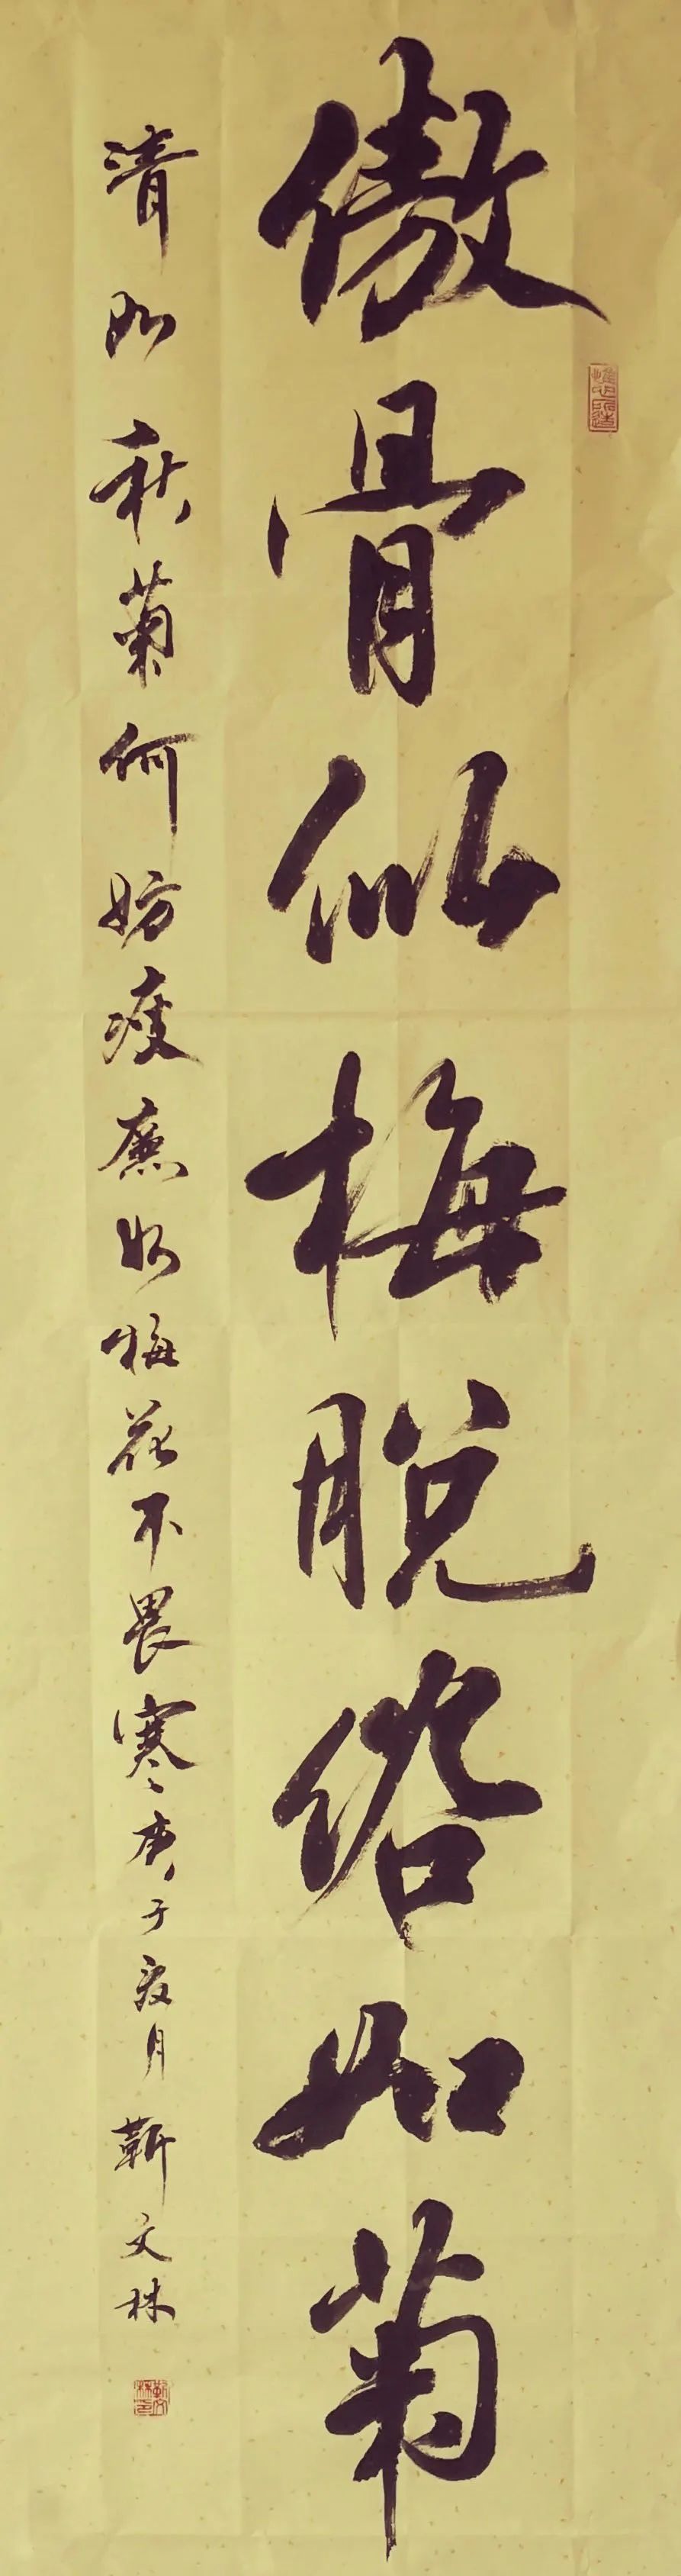 傲骨似梅脱俗如菊
清如秋菊何妨瘦廉如梅花不畏寒庚子夏月靳文林